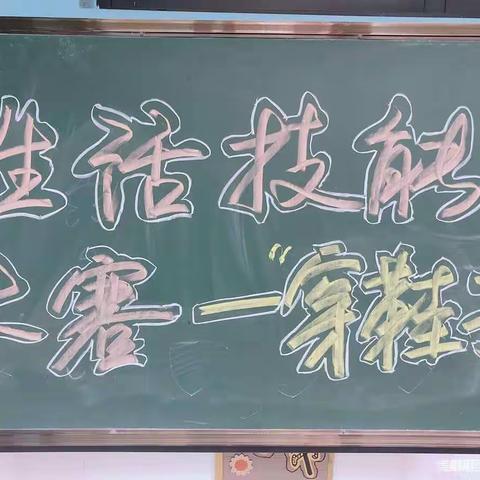 生话技能
赛—“穿鞋